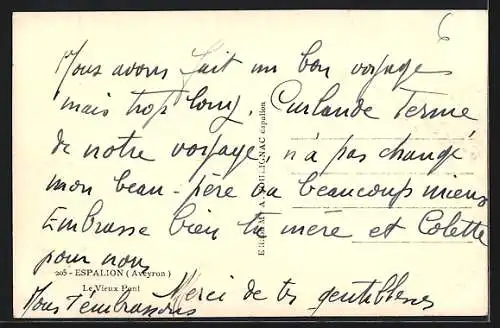 Nous avons fait un bon voyage
mais trop long. Curlande Terme
de notre voyage, n'a pas changé
mon beau-père va beaucoup mieux
Embrasse bien ta mère et Colette
pour nous
205 - ESPALION (Aveyron)
Le Vieux Pont
Merci de tes gentillesses
Nous t'embrassons
6